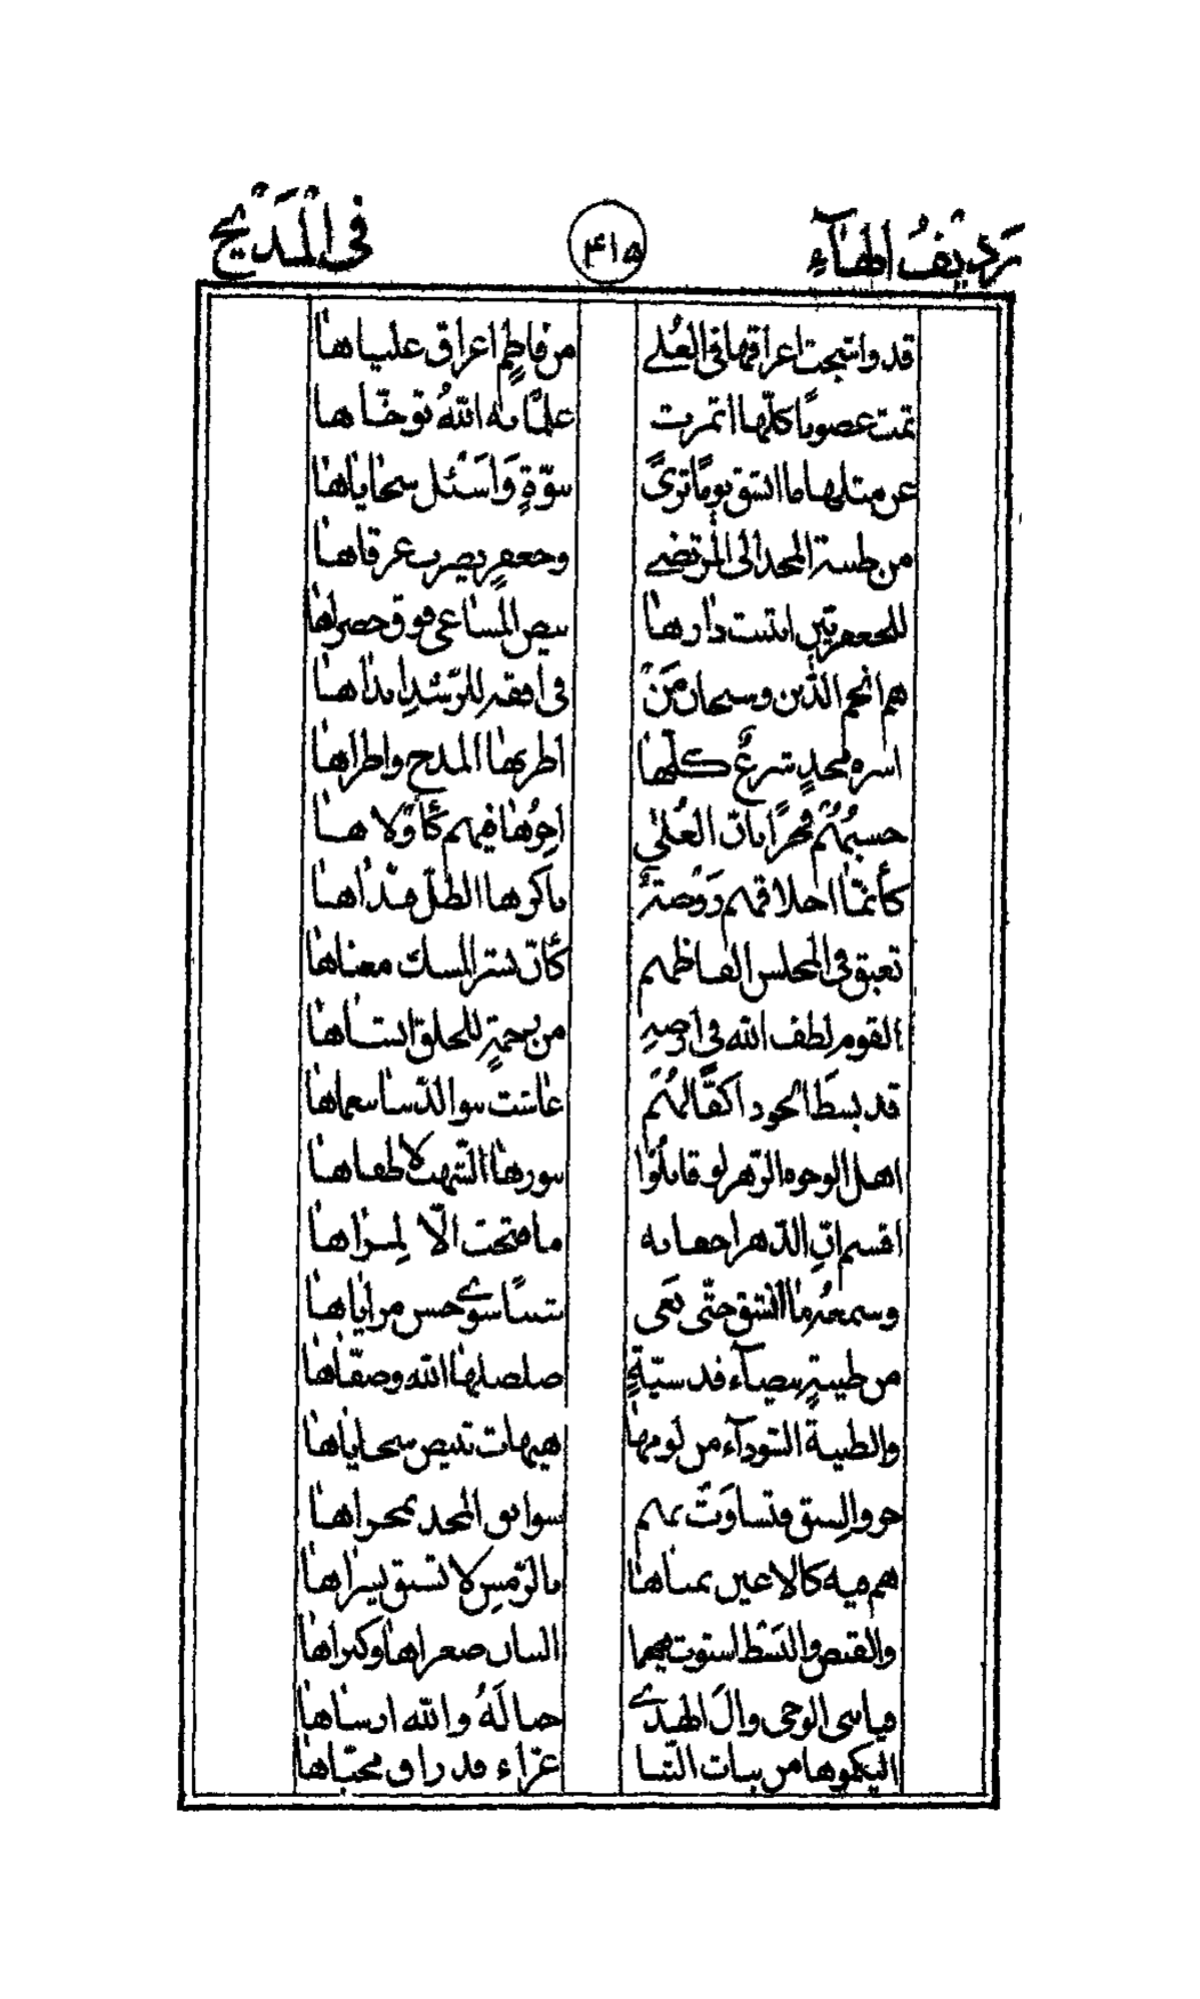 رديف الهاء ٤١٥ في المديح
قد واشجت اعراقها في العلى من فاطم اعراق علياها
نمت غصونا كلها اثمرت علا به الله توخاها
عن مثلها ما انشق يوما ترى سوة واسئل سجاياها
من طينة المجد الى المرتضى وجعفر يضرب عرقاها
للجعفريين ابتنت دارها بيض المساعي فوق حصراها
هم انجم الدين وسبحان من في افقه للرشد ابداها
اسرة مجد شرع كلها اطر بها المدح واطراها
حسبهم فخرا بان العلى اخرها فيهم كأولاها
كأنما اخلاقهم روضة باكرها الطل فنداها
تعبق في المجلس الفاظهم كأن نشر المسك معناها
القوم لطف الله في ارضه من رحمة للخلق انشاها
قد بسط الجود اكفا لهم عاشت بنو الدنيا بنعماها
اهل الوجوه الزهر لو قابلوا بنورها الشهب لاطفاها
اقسم ان الدهر اجفانه ما فتحت الا لمراها
وسمعه ما انشق حتى يعي شيئا سوى حسن مزاياها
من طينة بيضاء قدسية صلصلها الله وصفاها
والطينة السوداء من لومها هيهات تبيض سجاياها
جروا لسبق فتساوت بهم سوابق المجد بمجراها
هم فيه كالاعين يمناها بالرمش لا تسبق يسراها
والقبض والبسط استوت فيهما البنان صغراها وكبراها
فيا بني الوحي وال الهدى جباله والله ارساها
اليكموها من بنات الثنا غراء قد راق محياها